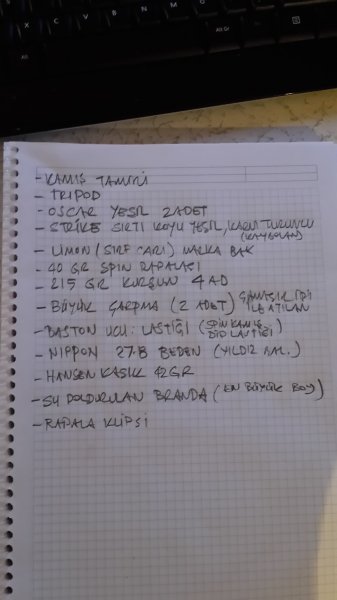 X C V B N M
Alt Alt Gr
- KAMIŞ TAMİRİ
- TRIPOD
- OSCAR YEŞİL 2 ADET
- STRIKE SIRTI KOYU YEŞİL, KARNI TURUNCU
(KAYBOLAN)
- LİMON (SIRF SARI) MARKA BAK
- 40 GR SPIN RAPALASI
- 215 GR KURŞUN 4 AD
- BÜYÜK ÇARPMA (2 ADET) ÇAMAŞIR İPİ
İLE ATILAN
- BASTON UCU LASTİĞİ (SPIN KAMIŞ
DİP LASTİĞİ)
- NIPPON 27-B BEDEN (YILDIZ)
- HANSEN KAŞIK 42 GR
- SU DOLDURULAN BRANDA (EN BÜYÜK BOY)
- RAPALA KLİPSİ